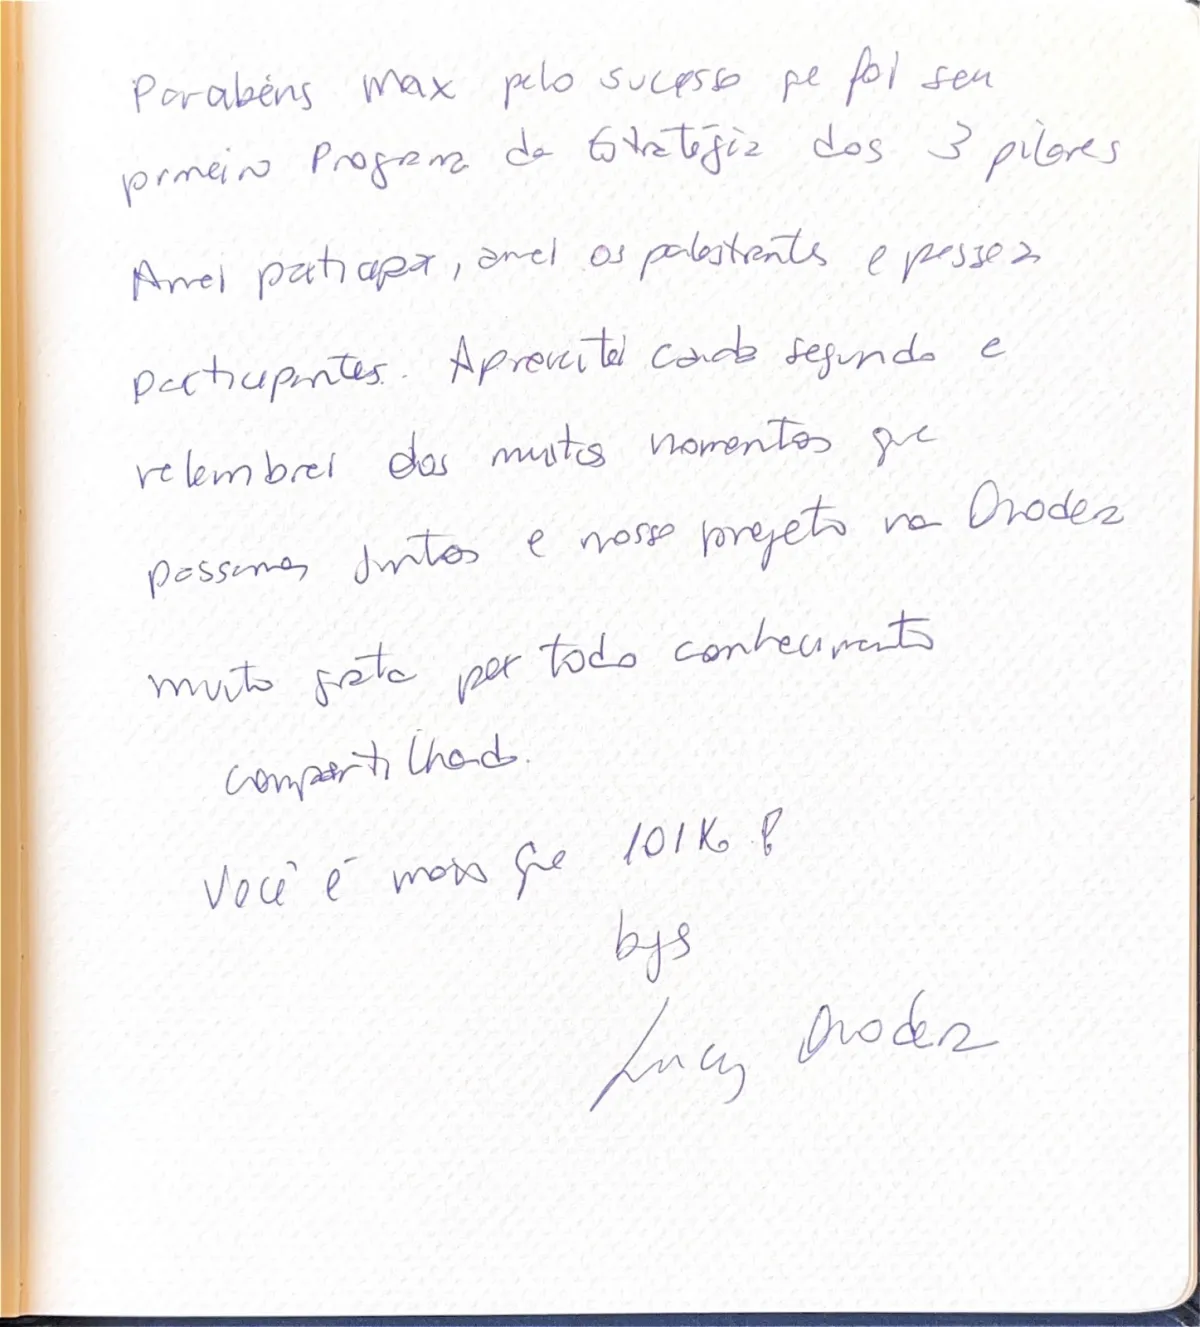 Parabéns Max pelo sucesso que foi seu
primeiro Programa da Estratégia dos 3 pilares
Amei participar, amei os palestrantes e pessoas
participantes. Aproveitei cada segundo e
relembrei dos muitos momentos que
passamos juntos e nosso projeto na Onodera
muito grata por todo conhecimento
compartilhado.
Você é mais que 101K
bjs
Lucy Onodera